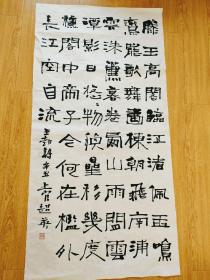 滕王高閣臨江渚佩玉鳴
鸞罷歌舞畫棟朝飛南浦
雲珠簾暮卷西山雨閒雲
潭影日悠々物換星移幾度
秋閣中帝子今何在檻外
長江空自流
王勃詩上官超英